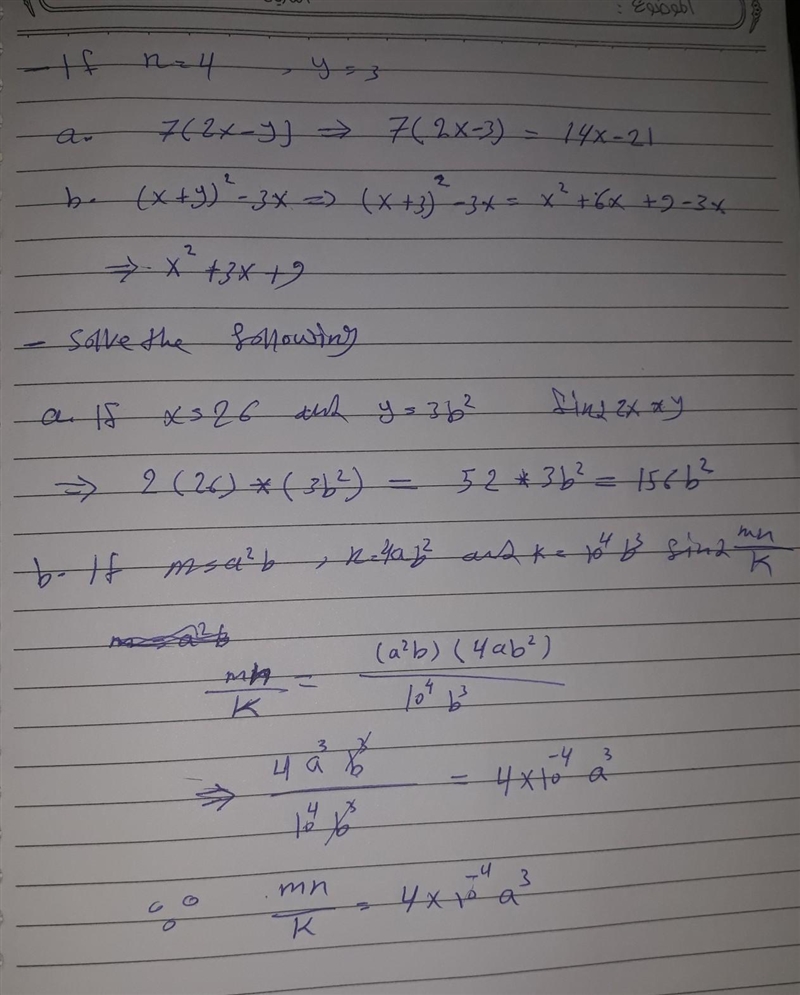 الموضوع :
- If n=4 , y=3
a. 7(2x-y) ⇒ 7(2x-3) = 14x-21
b. (x+y)² -3x ⇒ (x+3)² -3x = x² +6x +9-3x
⇒ x² +3x+9
- Solve the following
a. If x=26 and y=3b² find 2x*y
⇒ 2(26)*(3b²) = 52*3b² = 156b²
b. If m=a²b , n=4ab² and k=10⁴b³ find mn/K
m=a²b
mn/K = (a²b)(4ab²)/10⁴b³
⇒ 4a³b³/10⁴b³ = 4×10⁻⁴a³
∴ mn/K = 4×10⁻⁴a³